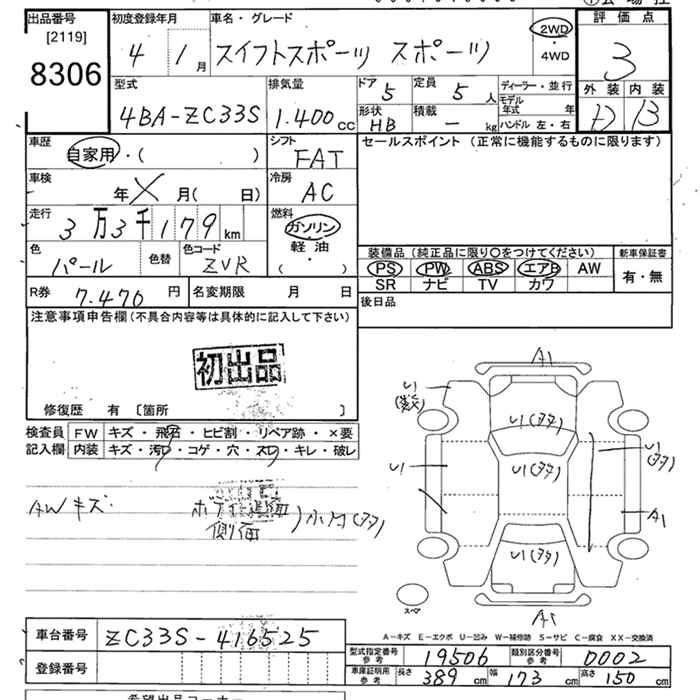 出品番号 初度登録年月 車名・グレード 2WD 評価点
[2119] 4 1月 スイフトスポーツ スポーツ ・ 3
8306 4WD
型式 排気量 ドア 定員 ディーラー・並行 外装 内装
4BA-ZC33S 1.400cc 5 5人 モデル年式 年 D B
形状 積載 ハンドル 左・右
HB - kg
車歴 シフト セールスポイント (正常に機能するものに限ります)
自家用・( ) FAT
車検 冷房
年 X 月( 日) AC
走行 燃料
3万3千179km ガソリン
色 色替 色コード 軽油 装備品(純正品に限り〇をつけてください) 新車保証書
パール ZVR ( ・ ) PS PW ABS エアB AW 有・無
SR ナビ TV カワ
R券 7.470円 名変期限 月 日 後日品
注意事項申告欄(不具合内容等は具体的に記入して下さい)
初出品
修復歴 有 〔箇所 〕
検査員 FW キズ・飛石・ヒビ割・リペア跡・×要
記入欄 内装 キズ・汚レ・コゲ・穴・スレ・キレ・破レ
AWキズ.
側面
A1
U1
U1(多タ)
U1(多タ)
U1 U1(多タ)
A1
U1(多タ)
スペア
A1
A-キズ E-エクボ U-凹み W-補修跡 S-サビ C-腐食 XX-交換済
車台番号 ZC33S-416525
型式指定番号 参考 19506 類別区分番号 参考 0002
登録番号
車庫証明用 参考 長さ 389cm 幅 173cm 高さ 150cm
希望出品コーナー